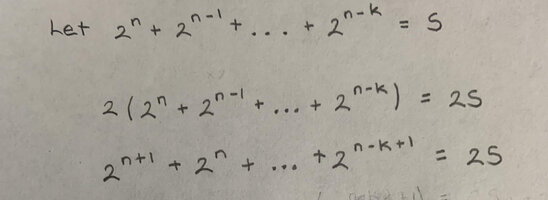 Let 2ⁿ + 2ⁿ⁻¹ + ... + 2ⁿ⁻ᵏ = S
2(2ⁿ + 2ⁿ⁻¹ + ... + 2ⁿ⁻ᵏ) = 2S
2ⁿ⁺¹ + 2ⁿ + ... + 2ⁿ⁻ᵏ⁺¹ = 2S